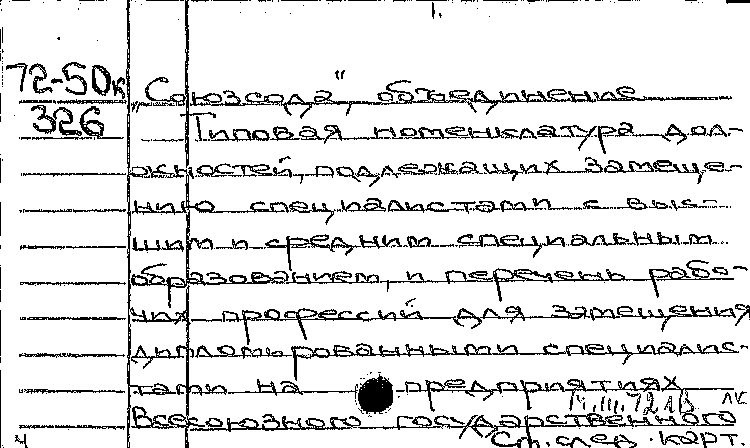 1.
72-50к
326
"Союзсода", объединение
Типовая номенклатура дол-
жностей, подлежащих замеще-
нию специалистами с выс-
шим и средним специальным
образованием, и перечень рабо-
чих профессий для замещения
дипломированными специалис-
тами на предприятиях
14.III.72 ЛВ ЛК
Всесоюзного государственного
См. след. карт.
ч